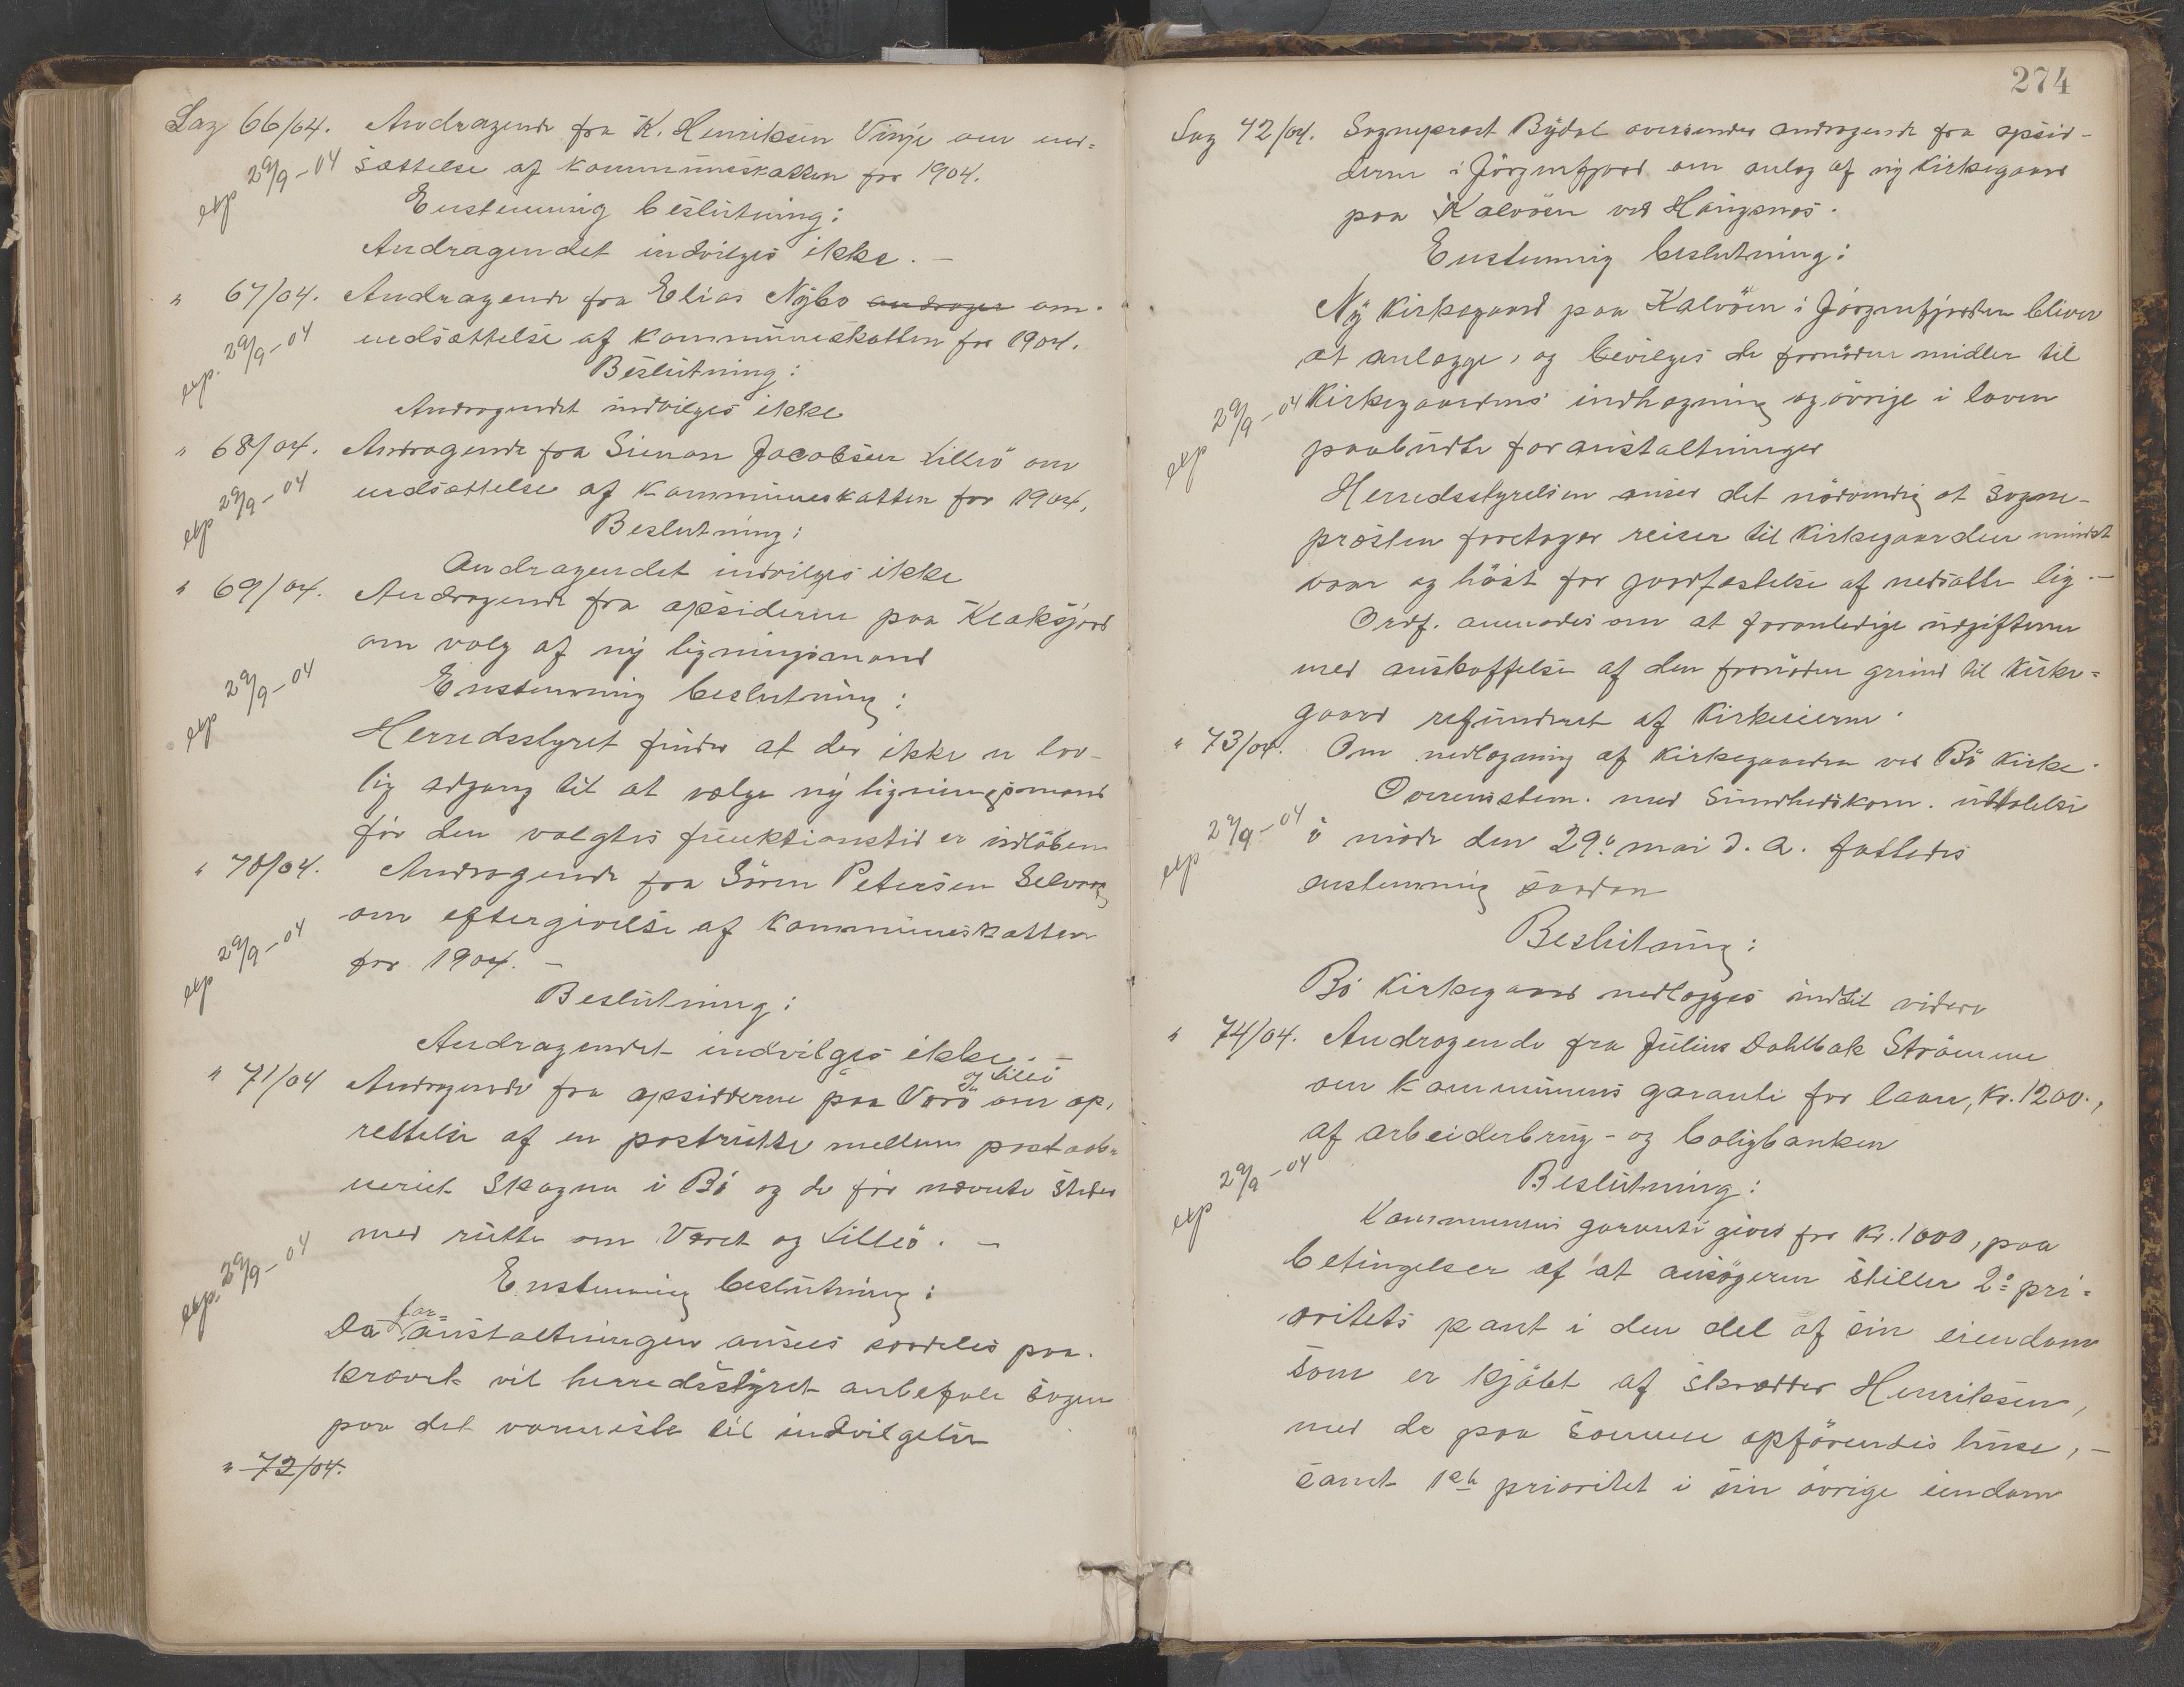 Sag 66/04. Andragende fra K. Henriksen Vinje om ned-
exp 29/9-04 sættelse af kommuneskatten for 1904.
Enstemmig beslutning:
Andragendet indvilges ikke. –
" 67/04. Andragende fra Elias Nybo andrager om
exp. 29/9-04 nedsættelse af kommuneskatten for 1904.
Beslutning:
Andragendet indvilges ikke
" 68/04. Andragende fra Simon Jacobsen Lilleö om
exp 29/9-04 nedsættelse af kommuneskatten for 1904.
Beslutning:
Andragendet indvilges ikke
" 69/04. Andragende fra opsiderne paa Klaksjord
om valg af ny ligningsmand
exp 29/9-04 Enstemmig beslutning:
Herredsstyret finder at der ikke er lov-
lig adgang til at vælge ny ligningsmand
för den valgtes funktionstid er udlöben
" 70/04. Andragende fra Sören Petersen Selvaag
om eftergivelse af kommuneskatten
exp 29/9-04 for 1904. –
Beslutning:
Andragendet indvilges ikke. –
" 71/04 Andragende fra opsidderne paa Værö og Lilleö om op-
rettelse af en postrute mellem postaab-
neriet Skagen i Bö og de för nævnte steder
med rute om Været og Lilleö. –
exp. 29/9-04 Enstemmig beslutning:
Da foranstaltningen ansees særdeles paa-
krævet vil herredsstyret anbefale sagen
paa det varmeste til indvilgelse
" 72/04.
274
Sag 72/04. Sogneprest Bydal oversender andragende fra opsid-
derne i Jörgenfjord om anlæg af ny kirkegaard
paa Kalvöen ved Haugsnes.
Enstemmig beslutning:
Ny kirkegaard paa Kalvöen i Jörgenfjorden bliver
at anlægge, og bevilges de fornödne midler til
exp 29/9-04 kirkegaardens indhegning og övrige i loven
paabudte foranstaltninger
Herredsstyrelsen anser det nödvendig at sogne-
presten foretager reiser til kirkegaarden mindst
vaar og höst for jordfæstelse af nedsatte lig. –
Ordf. anmodes om at foranledige udgifterne
med anskaffelse af den fornödne grund til kirke-
gaard refunderet af kirkeeierne.
" 73/04. Om nedlægning af kirkegaarden ved Bö kirke.
Overensstem. med Sundhedskom. uttalelse
exp 29/9-04 i möde den 29de mai d. a. fattedes
enstemmig saadan
Beslutning:
Bö kirkegaard nedlægges indtil videre
" 74/04. Andragende fra Julius Dahlbak Strömme
om kommunens garanti for laan, kr. 1200.,
af arbeiderbrug- og boligbanken
exp 29/9-04 Beslutning:
Kommunens garanti gives for kr. 1000, paa
betingelser af at ansögeren stiller 2. pri-
oritets pant i den del af sin eiendom
som er kjöbt af skrædder Henriksen,
med de paa samme opförendes huse, –
samt 1ste prioritet i sin övrige eiendom